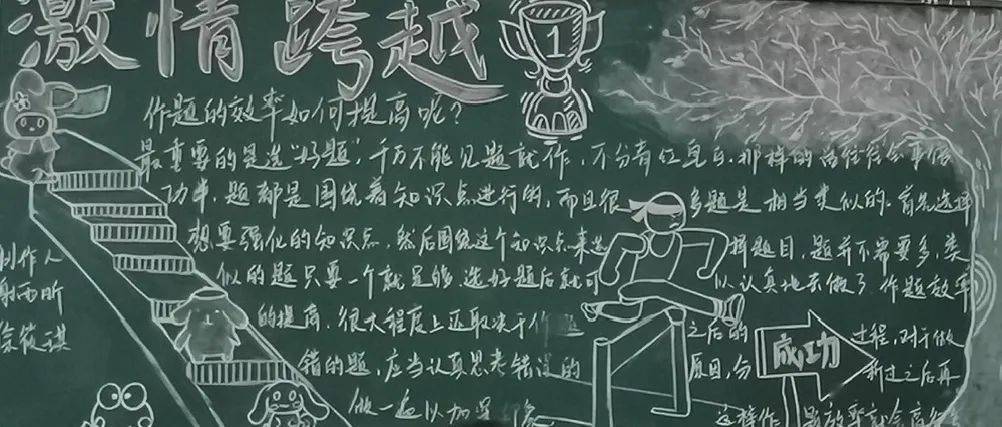 激情跨越
1
作题的效率如何提高呢?
最重要的是选“好题”,千万不能见题就作,不分青红皂白,那样的话往往会事倍
功半,题都是围绕着知识点进行的,而且很多题是相当类似的,首先选择
想要强化的知识点,然后围绕这个知识点来选择题目,题并不需要多,类
似的题只要一个就足够,选好题后就可以认真地去做了,作题效率
的提高,很大程度上还取决于作题之后的过程,对于做
错的题,应当认真思考错误的原因,
成功
之后再
做一遍以加深印象
这样作题效率就会高
制作人